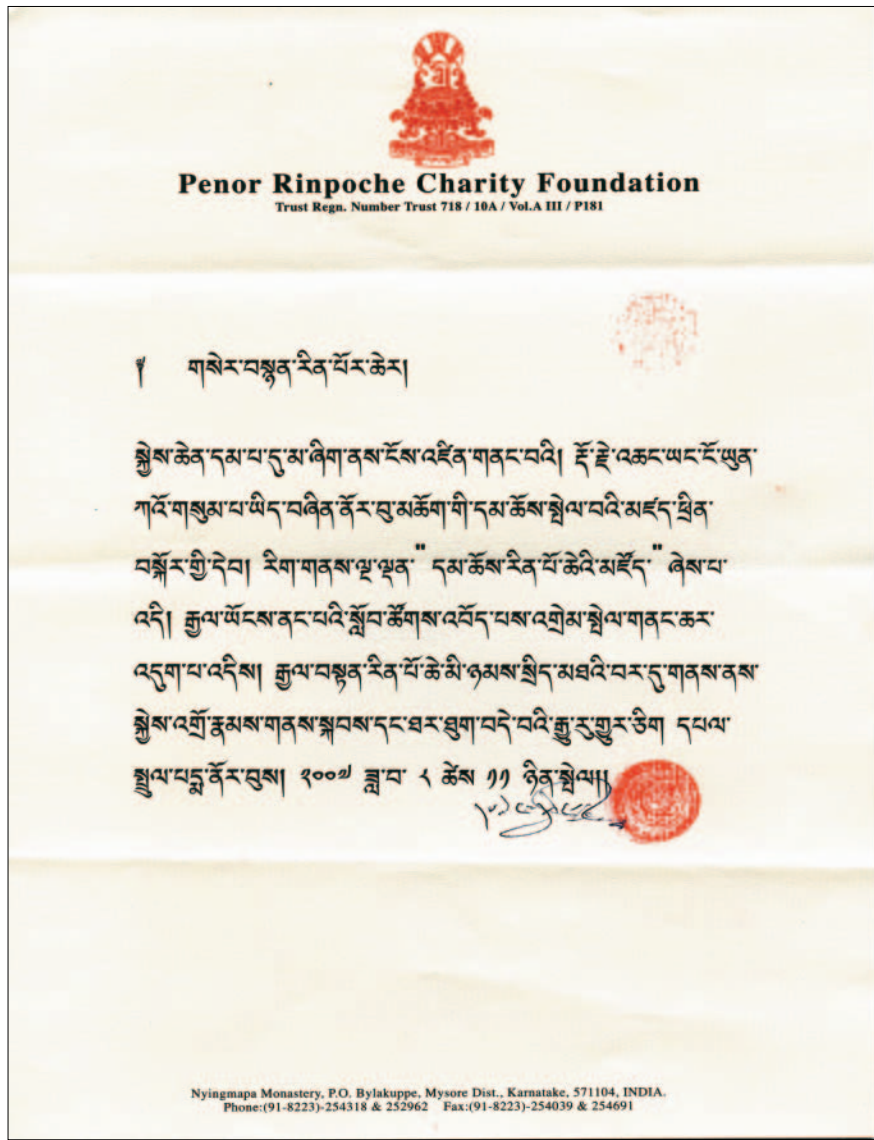 Penor Rinpoche Charity Foundation
Trust Regn. Number Trust 718 / 10A / Vol.A III / P181
༈ གསེར་བསྟན་རིན་པོར་ཆེར།
སྐྱེས་ཆེན་དམ་པ་དུ་མ་ཞིག་ནས་ངོས་འཛིན་གནང་བའི། རྡོ་རྗེ་འཆང་ཡང་ངོ་ཡུན་
ཀའོ་གསུམ་པ་ཡིད་བཞིན་ནོར་བུ་མཆོག་གི་དམ་ཆོས་སྤེལ་བའི་མཛད་ཕྲིན་
བསྐོར་གྱི་དེབ། རིག་གནས་ལྔ་ལྡན་"དམ་ཆོས་རིན་པོ་ཆེའི་མཛོད་"ཞེས་པ་
འདི། རྒྱལ་ཡོངས་ནང་པའི་སློབ་ཚོགས་འབོད་པས་འགྲེམ་སྤེལ་གནང་ཆར་
འདུག་པ་འདིས། རྒྱལ་བསྟན་རིན་པོ་ཆེ་མི་ཉམས་སྲིད་མཐའི་བར་དུ་གནས་ནས་
སྐྱེས་འགྲོ་རྣམས་གནས་སྐབས་དང་ཐར་ཐུག་བདེ་བའི་རྒྱུ་རུ་གྱུར་ཅིག དཔལ་
སྤྲུལ་པདྨ་ནོར་བུས། ༢༠༠༧ ཟླ་བ་ ༨ ཚེས ༡༡ ཉིན་སྤེལ།།
Nyingmapa Monastery, P.O. Bylakuppe, Mysore Dist., Karnatake, 571104, INDIA.
Phone:(91-8223)-254318 & 252962 Fax:(91-8223)-254039 & 254691